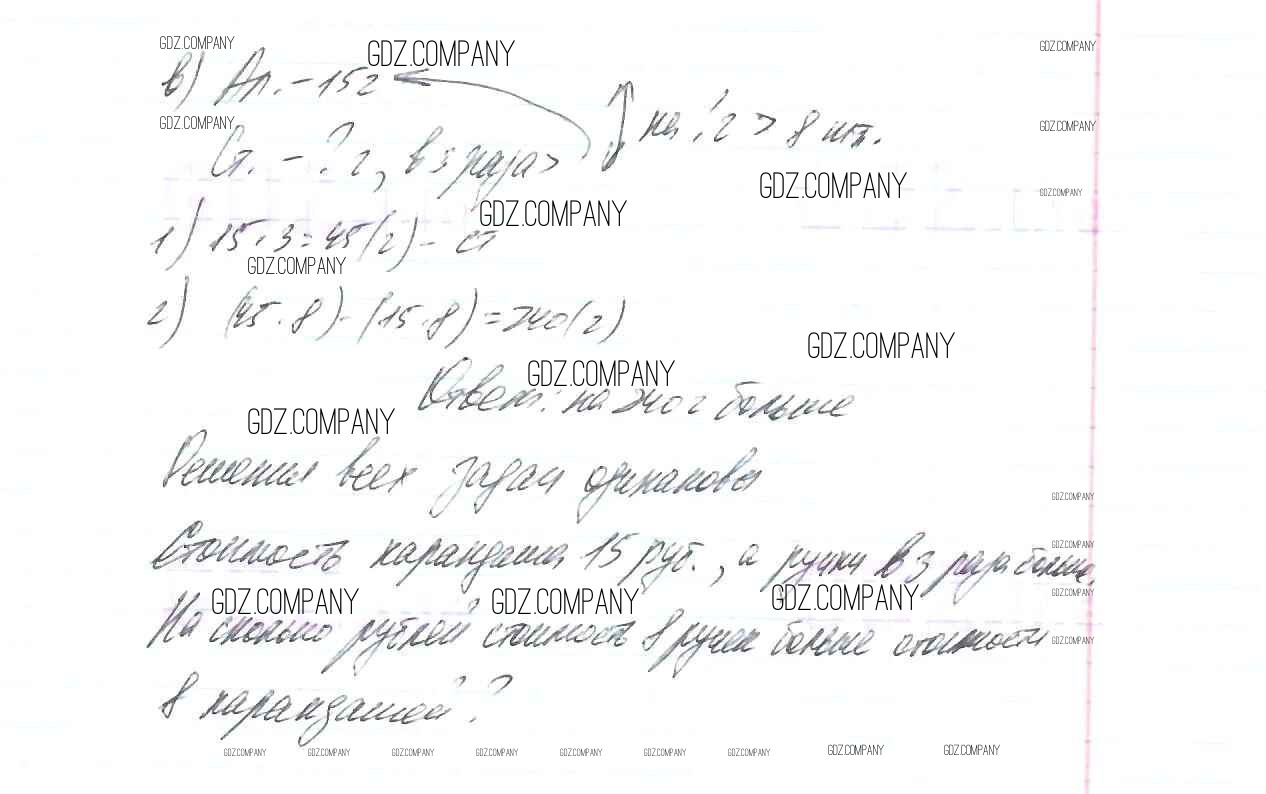 GDZ.COMPANY GDZ.COMPANY GDZ.COMPANY
в) Ал. - 15 г
GDZ.COMPANY на ? г > 8 шт. GDZ.COMPANY
Ст. - ? г, в 3 раза >
GDZ.COMPANY GDZ.COMPANY
GDZ.COMPANY
1) 15 · 3 = 45 (г) - ст
GDZ.COMPANY
2) (45 · 8) - (15 · 8) = 240 (г)
GDZ.COMPANY
GDZ.COMPANY
Ответ: на 240 г больше
GDZ.COMPANY
Решения всех задач одинаковы
GDZ.COMPANY
GDZ.COMPANY
Стоимость карандаша 15 руб., а ручки в 3 раза больше.
GDZ.COMPANY GDZ.COMPANY GDZ.COMPANY GDZ.COMPANY
На сколько рублей стоимость 8 ручек больше стоимости
GDZ.COMPANY
8 карандашей?
GDZ.COMPANY GDZ.COMPANY GDZ.COMPANY GDZ.COMPANY GDZ.COMPANY GDZ.COMPANY GDZ.COMPANY GDZ.COMPANY GDZ.COMPANY